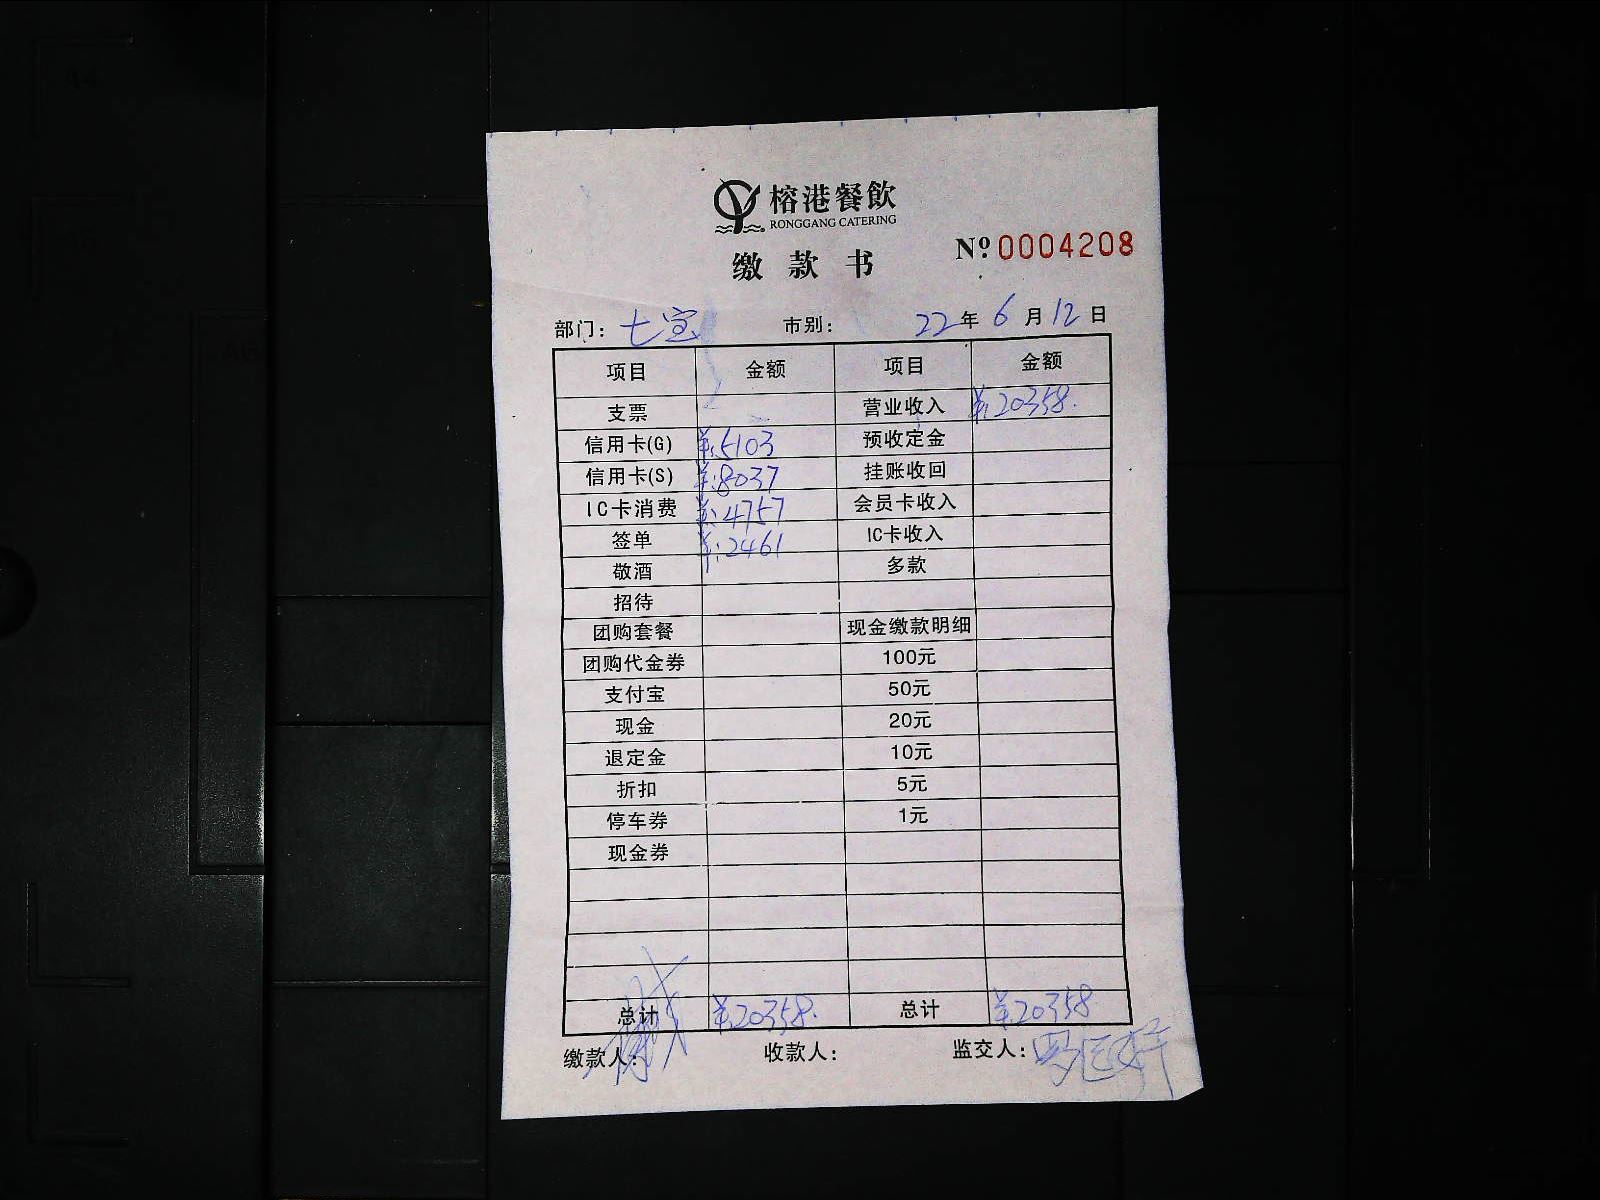 榕港餐飲
RONGGANG CATERING
缴款书 №0004208
部门：七宝 市别： 22年6月12日
项目 金额 项目 金额
支票 营业收入 ¥:20358.
信用卡(G) ¥:5103 预收定金
信用卡(S) ¥:8037 挂账收回
IC卡消费 ¥:4757 会员卡收入
签单 ¥:2461 IC卡收入
敬酒 多款
招待
团购套餐 现金缴款明细
团购代金券 100元
支付宝 50元
现金 20元
退定金 10元
折扣 5元
停车券 1元
现金券
总计 ¥:20358. 总计 ¥:20358
缴款人： 收款人： 监交人：